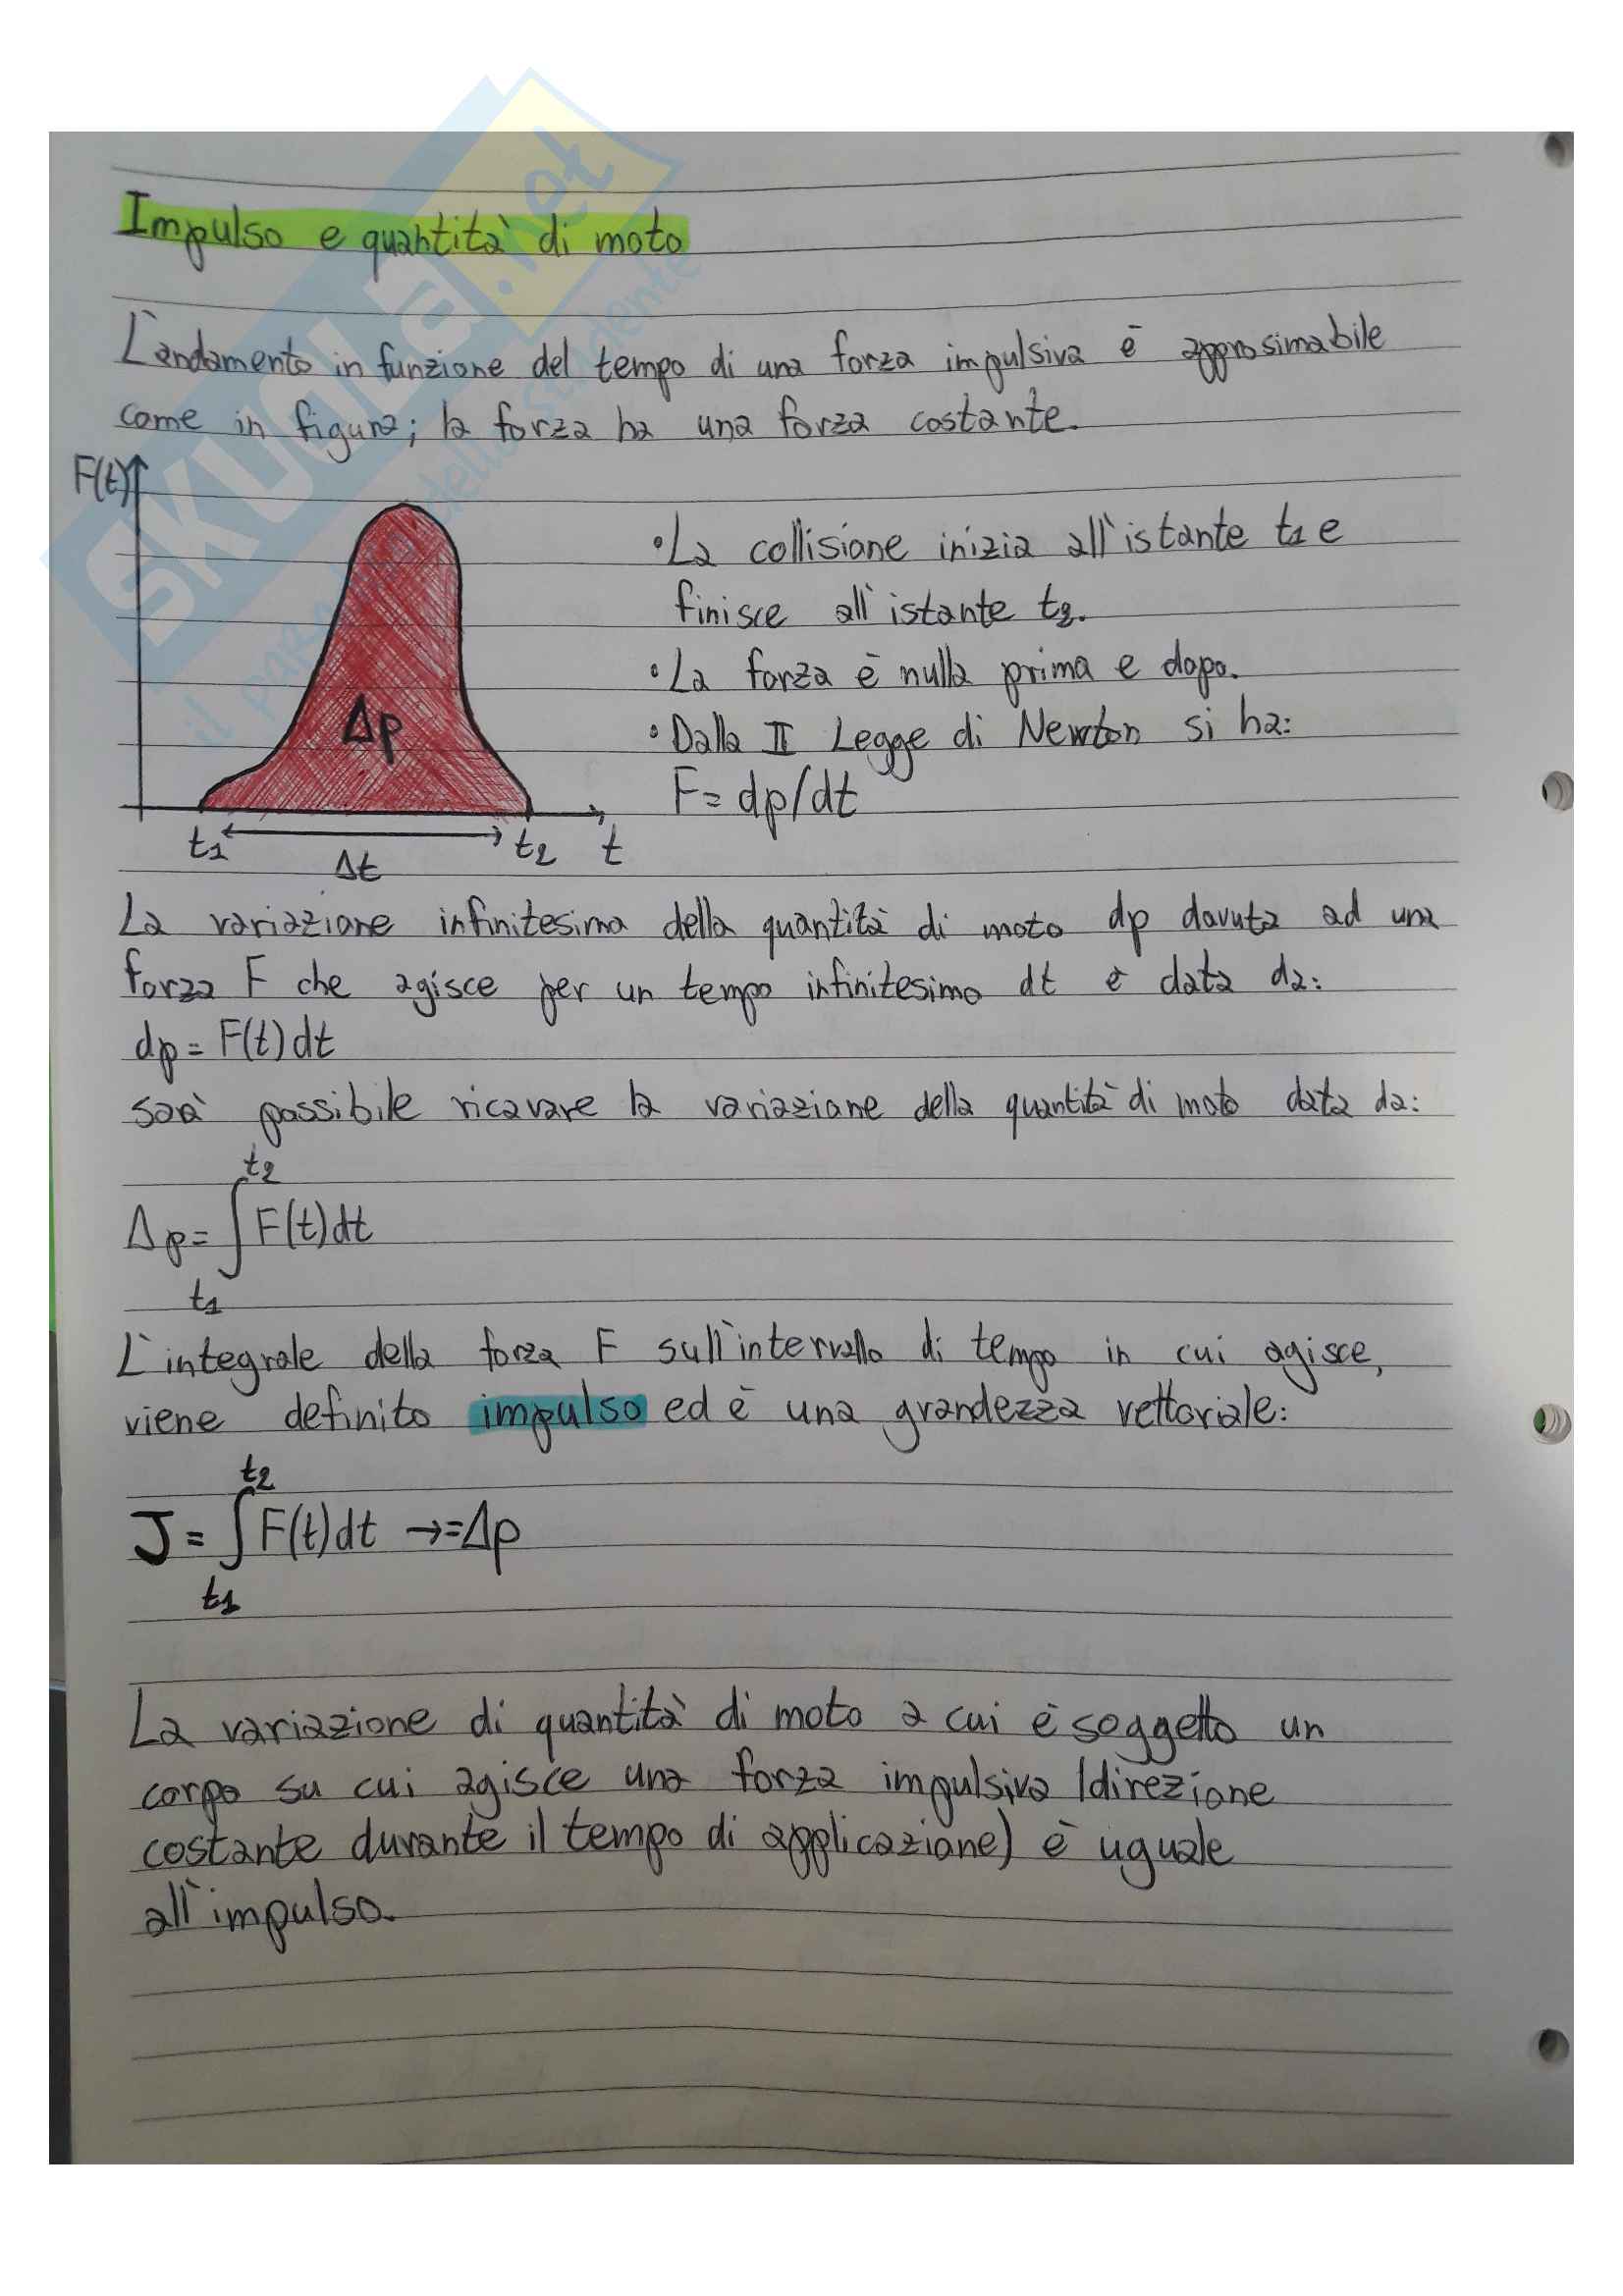 Impulso e quantità di moto
L'andamento in funzione del tempo di una forza impulsiva è approsimabile
come in figura; la forza ha una forza costante.
F(t)
•La collisione inizia all'istante t1 e
finisce all'istante t2.
•La forza è nulla prima e dopo.
•Dalla II Legge di Newton si ha:
F=dp/dt
Δp
t1 t2 t
Δt
La variazione infinitesima della quantità di moto dp dovuta ad una
forza F che agisce per un tempo infinitesimo dt è data da:
dp=F(t)dt
sarà possibile ricavare la variazione della quantità di moto data da:
t2
Δp=∫F(t)dt
t1
L'integrale della forza F sull'intervallo di tempo in cui agisce,
viene definito impulso ed è una grandezza vettoriale:
t2
J=∫F(t)dt →=Δp
t1
La variazione di quantità di moto a cui è soggetto un
corpo su cui agisce una forza impulsiva (direzione
costante durante il tempo di applicazione) è uguale
all'impulso.
SKUOLA.net
il paradiso dello studente